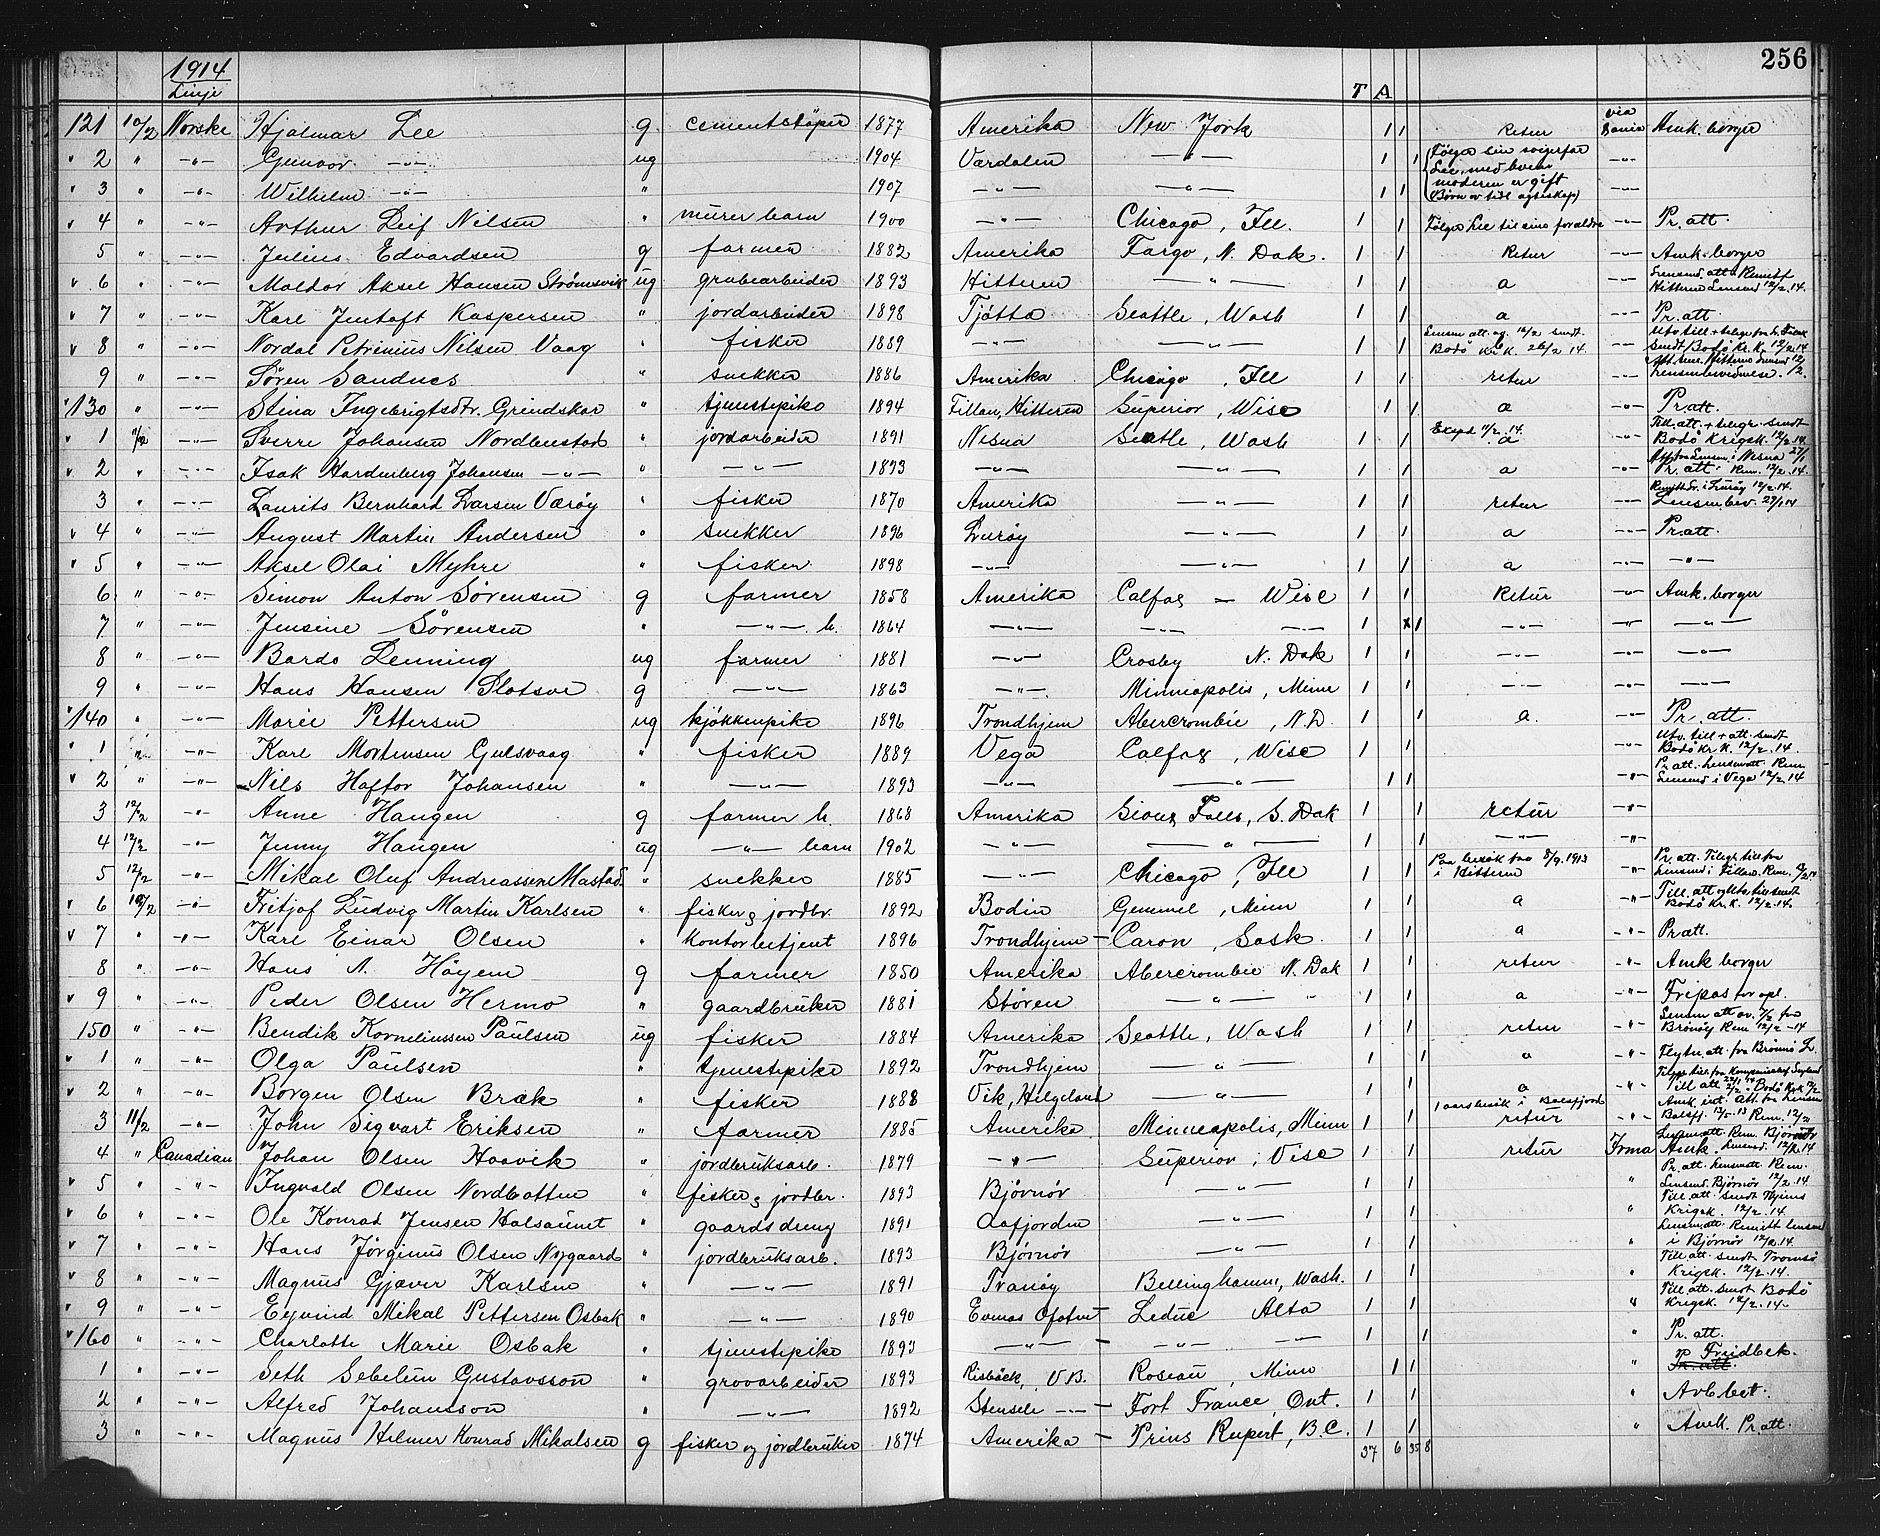 256
1914
Linje T A
121 10/2 Norske Hjalmar Lee g cementstøper 1877 Amerika New York 1 1 retur via Dania Amk. borger
v 2 " -"- Gunvor -"- ug 1904 Værdalen -"- 1 1 Følger sin svigerfar -"-
Lee, med hvem
v 3 " -"- Wilhelm -"- " 1907 -"- -"- 1 1 moderen er gift -"-
v 4 " -"- Arthur Leif Nilsen " murer barn 1900 -"- Chicago, Ill. 1 1 Følger Lee til sine forældre -"- Pr. att.
5 " -"- Julius Edvardsen g farmer 1882 Amerika Fargo, N. Dak. 1 1 Retur -"- Amk. borger
v 6 " -"- Haldor Aksel Hansen Strømsvik ug grubearbeider 1893 Hitteren -"- 1 1 a -"- Hitteren Lensmd 12/2.14.
v 7 " -"- Karl Jentoft Kaspersen " jordarbeider 1898 Tjøtta Seattle, Wash 1 1 a -"- Pr. att.
v 8 " -"- Nordal Petrinius Nilsen Vaag " fisker 1889 -"- -"- 1 1 Bodø Kr.K. 26/2 14. -"- Bodø Kr. K. 12/2.14
9 " -"- Søren Sandnes " snekker 1886 Amerika Chicago, Ill 1 1 retur -"-
v 130 " -"- Stina Ingebrigtsdtr. Grindskar " tjenestepike 1894 Fillan, Hitteren Superior, Wisc 1 1 a -"- Pr. att.
v 1 11/2 -"- Sverre Johansen Nordbustad " jordarbeider 1891 Nesna Seatle, Wash 1 1 a " Bodø Krigsk. 12/2.14
v 2 " -"- Isak Hardenberg Johansen -"- " -"- 1893 -"- -"- 1 1 a -"- Pr. att. Rem. 12/2.14.
3 " -"- Laurits Bernhard Larsen Værøy " fisker 1870 Amerika -"- 1 1 retur -"- Lensm. bev. 29/1 14
v 4 " -"- August Martin Andersen " snekker 1896 Lurøy -"- 1 1 a -"- Pr. att.
v 5 " -"- Aksel Olai Myhre " fisker 1898 -"- -"- 1 1 a -"- -"-
6 " -"- Simon Anton Sørensen g farmer 1858 Amerika Calfax - Wisc 1 1 Retur -"- Amk. borger
7 " -"- Jensine Sørensen " -"- h. 1864 -"- -"- -"- 1 x 1 -"- -"- -"-
8 " -"- Bardo Lenning ug farmer 1881 -"- Crosby N. Dak 1 1 -"- -"- -"-
9 " -"- Hans Hansen Slotsve g -"- 1863 -"- Minneapolis, Minn 1 1 -"- -"- -"-
v 140 " -"- Marie Pettersen ug kjøkkenpike 1896 Trondhjem Abercrombie, N.D. 1 1 a. -"- Pr. att.
v 1 " -"- Karl Mortensen Gulsvaag " fisker 1889 Vega Calfax, Wisc 1 1 Bodø kr. K. 12/2.14.
v 2 " -"- Nils Haftor Johansen " -"- 1893 -"- -"- 1 1 -"- Lensmd i Vega 12/2.14
3 12/2 -"- Anne Haugen g farmer h. 1868 Amerika Sioux Falls, S. Dak 1 1 retur -"-
4 12/2 -"- Jenny Haugen ug -"- barn 1902 -"- -"- 1 1 -"- -"-
5 12/2 -"- Mikal Oluf Andreassen Mastad " snekker 1885 -"- Chicago, Ill 1 1 Paa besøk fra 8/9.1913 i Hitteren -"-
v 6 10/2 -"- Fritjof Ludvig Martin Karlsen " fisker & jordbr. 1892 Bodin Gemmel, Minn 1 1 a -"- Bodø Kr. K. 12/2.14.
v 7 " -"- Karl Einar Olsen " kontorbetjent 1896 Trondhjem - Caron, Sask. 1 1 a -"- Pr. att.
8 " -"- Hans N. Høyem g farmer 1850 Amerika Abercrombie N. Dak 1 1 retur -"- Amk borger
v 9 " -"- Peder Olsen Hermo " gaardbruker 1881 Støren -"- " 1 1 a -"- Fripas for opl.
150 " -"- Bendik Korneliussen Paulsen ug fisker 1884 Amerika Seattle, Wash 1 1 retur -"- Brønøy Rem 12/2-14
v 1 " -"- Olga Paulsen " tjenestepike 1892 Trondhjem -"- 1 1 a -"- Flytn. att. fra Brønnø L.
v 2 " -"- Borgen Olsen Bræk " fisker 1888 Vik, Helgeland -"- 1 1 a -"-
3 11/2 -"- John Sigvart Eriksen " farmer 1885 Amerika Minneapolis, Minn 1 1 1 aars besøk i Balsfjord retur -"-
4 " Canadian Johan Olsen Haavik " jordbruksarb. 1879 -"- Superior, Visc 1 1 retur Irma
v 5 " -"- Ingvald Olsen Nordbotten " fisker & jordbr. 1893 Bjørnør -"- 1 1 " Lensmd. Bjørnør 12/2.14
v 6 " -"- Ole Konrad Jensen Halsaunet " gaardsdreng 1891 Aafjorden -"- 1 1 " Krigsk. 12/2.14.
v 7 " -"- Hans Jørginus Olsen Nygaard " jordbruksarb. 1893 Bjørnør -"- 1 1 " i Bjørnør 12/2.14.
v 8 " -"- Magnus Gjæver Karlsen " -"- 1891 Tranøy Bellinghamm, Wash. 1 1 " Till att. sendt Tromsø Krigsk. 12/2.14.
v 9 " -"- Eyvind Mikal Pettersen Osbak " -"- 1890 Evenæs Ofoten Leduc Alta 1 1 " Till att. sendt Bodø Krigsk. 12/2.14.
v 160 " -"- Charlotte Marie Osbak " tjenestepike 1893 -"- - -"- -"- 1 1 " Pr. att.
1 " -"- Seth Sebelein Gustavsson " grovarbeider 1893 Risbäck, V.B. Roseau, Minn 1 1 " Friedbek.
2 " -"- Alfred Johansson " -"- 1892 Stensele -"- - Fort France, Ont. 1 1 " Arb. bet.
3 " -"- Magnus Helmer Konrad Mikalsen g fisker og jordbruker 1874 Amerika - Prins Rupert, B.C. 1 1 " Amk. Pr. att.
37 6 35 8